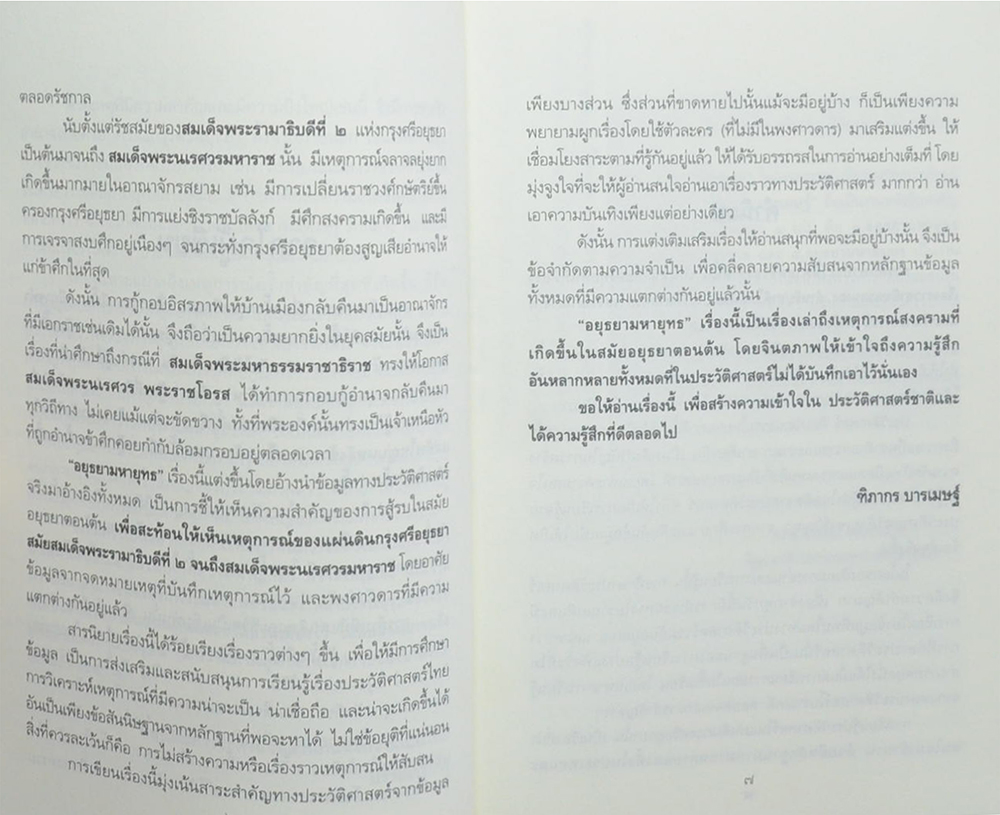 ตลอดรัชกาล
นับตั้งแต่รัชสมัยของสมเด็จพระรามาธิบดีที่ ๒ แห่งกรุงศรีอยุธยา
เป็นต้นมาจนถึง สมเด็จพระนเรศวรมหาราช นั้น มีเหตุการณ์จลาจลยุ่งยาก
เกิดขึ้นมากมายในอาณาจักรสยาม เช่น มีการเปลี่ยนราชวงศ์กษัตริย์ขึ้น
ครองกรุงศรีอยุธยา มีการแย่งชิงราชบัลลังก์ มีศึกสงครามเกิดขึ้น และมี
การเจรจาสงบศึกอยู่เนืองๆ จนกระทั่งกรุงศรีอยุธยาต้องสูญเสียอำนาจให้
แก่ข้าศึกในที่สุด
ดังนั้น การกู้กอบอิสรภาพให้บ้านเมืองกลับคืนมาเป็นอาณาจักร
ที่มีเอกราชเช่นเดิมได้นั้น จึงถือว่าเป็นความยากยิ่งในยุคสมัยนั้น จึงเป็น
เรื่องที่น่าศึกษาถึงกรณีที่ สมเด็จพระมหาธรรมราชาธิราช ทรงให้โอกาส
สมเด็จพระนเรศวร พระราชโอรส ได้ทำการกอบกู้อำนาจกลับคืนมา
ทุกวิถีทาง ไม่เคยแม้แต่จะขัดขวาง ทั้งที่พระองค์นั้นทรงเป็นเจ้าเหนือหัว
ที่ถูกอำนาจข้าศึกคอยกำกับล้อมกรอบอยู่ตลอดเวลา
"อยุธยามหายุทธ" เรื่องนี้แต่งขึ้นโดยอ้างนำข้อมูลทางประวัติศาสตร์
จริงมาอ้างอิงทั้งหมด เป็นการชี้ให้เห็นความสำคัญของการสู้รบในสมัย
อยุธยาตอนต้น เพื่อสะท้อนให้เห็นเหตุการณ์ของแผ่นดินกรุงศรีอยุธยา
สมัยสมเด็จพระรามาธิบดีที่ ๒ จนถึงสมเด็จพระนเรศวรมหาราช โดยอาศัย
ข้อมูลจากจดหมายเหตุที่บันทึกเหตุการณ์ไว้ และพงศาวดารที่มีความ
แตกต่างกันอยู่แล้ว
สารนิยายเรื่องนี้ได้ร้อยเรียงเรื่องราวต่างๆ ขึ้น เพื่อให้มีการศึกษา
ข้อมูล เป็นการส่งเสริมและสนับสนุนการเรียนรู้เรื่องประวัติศาสตร์ไทย
การวิเคราะห์เหตุการณ์ที่มีความน่าจะเป็น น่าเชื่อถือ และน่าจะเกิดขึ้นได้
อันเป็นเพียงข้อสันนิษฐานจากหลักฐานที่พอจะหาได้ ไม่ใช่ข้อยุติที่แน่นอน
สิ่งที่ควรละเว้นก็คือ การไม่สร้างความหรือเรื่องราวเหตุการณ์ให้สับสน
การเขียนเรื่องนี้มุ่งเน้นสาระสำคัญทางประวัติศาสตร์จากข้อมูล
เพียงบางส่วน ซึ่งส่วนที่ขาดหายไปนั้นแม้จะมีอยู่บ้าง ก็เป็นเพียงความ
พยายามผูกเรื่องโดยใช้ตัวละคร (ที่ไม่มีในพงศาวดาร) มาเสริมแต่งขึ้น ให้
เชื่อมโยงสาระตามที่รู้กันอยู่แล้ว ให้ได้รับอรรถรสในการอ่านอย่างเต็มที่ โดย
มุ่งจูงใจที่จะให้ผู้อ่านสนใจอ่านเอาเรื่องราวทางประวัติศาสตร์ มากกว่า อ่าน
เอาความบันเทิงเพียงแต่อย่างเดียว
ดังนั้น การแต่งเติมเสริมเรื่องให้อ่านสนุกที่พอจะมีอยู่บ้างนั้น จึงเป็น
ข้อจำกัดตามความจำเป็น เพื่อคลี่คลายความสับสนจากหลักฐานข้อมูล
ทั้งหมดที่มีความแตกต่างกันอยู่แล้วนั้น
"อยุธยามหายุทธ" เรื่องนี้เป็นเรื่องเล่าถึงเหตุการณ์สงครามที่
เกิดขึ้นในสมัยอยุธยาตอนต้น โดยจินตภาพให้เข้าใจถึงความรู้สึก
อันหลากหลายทั้งหมดที่ในประวัติศาสตร์ไม่ได้บันทึกเอาไว้นั่นเอง
ขอให้อ่านเรื่องนี้ เพื่อสร้างความเข้าใจใน ประวัติศาสตร์ชาติและ
ได้ความรู้สึกที่ดีตลอดไป
ฑิภากร บารเมษฐ์
๗